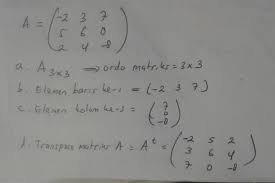 A = (-2 3 7
5 6 0
2 4 -8)
a. A3x3 ⟹ ordo matriks = 3 x 3
b. Elemen baris ke-1 = (-2 3 7)
c. Elemen kolom ke-3 = (7
0
-8)
d. Transpose matriks A = A^t = (-2 5 2
3 6 4
7 0 -8)